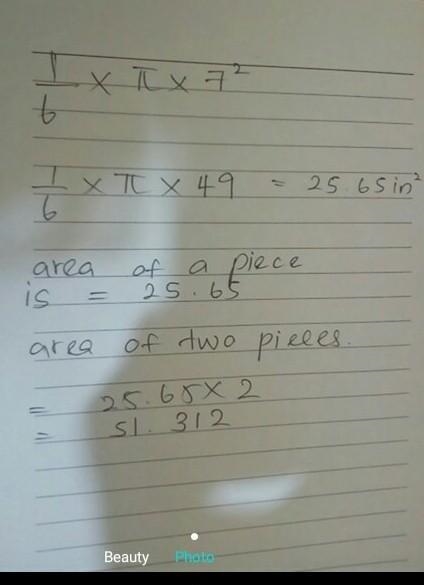 1/6 × π × 7²
1/6 × π × 49 = 25.65in²
area of a piece
is = 25.65
area of two pieces.
= 25.65×2
= 51.312
Beauty Photo